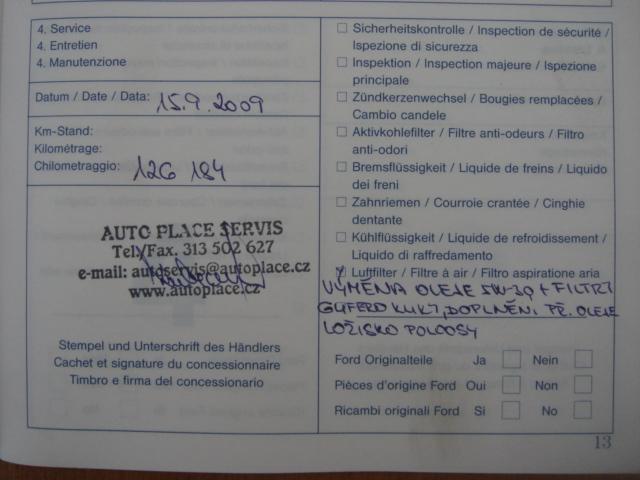 4. Service
4. Entretien
4. Manutenzione
Datum / Date / Data: 15.9.2009
Km-Stand:
Kilométrage:
Chilometraggio: 126 184
AUTO PLACE SERVIS
Tel./Fax. 313 502 627
e-mail: autoservis@autoplace.cz
www.autoplace.cz
Stempel und Unterschrift des Händlers
Cachet et signature du concessionnaire
Timbro e firma del concessionario
Sicherheitskontrolle / Inspection de sécurité /
Ispezione di sicurezza
Inspektion / Inspection majeure / Ispezione
principale
Zündkerzenwechsel / Bougies remplacées /
Cambio candele
Aktivkohlefilter / Filtre anti-odeurs / Filtro
anti-odori
Bremsflüssigkeit / Liquide de freins / Liquido
dei freni
Zahnriemen / Courroie crantée / Cinghie
dentante
Kühlflüssigkeit / Liquide de refroidissement /
Liquido di raffredamento
Luftfilter / Filtre à air / Filtro aspiratione aria
VÝMĚNA OLEJE 5W-30 + FILTRY
GUFERO KLIKY, DOPLNĚNÍ PŘ. OLEJE
LOŽISKO POLOOSY
Ford Originalteile Ja Nein
Pièces d'origine Ford Oui Non
Ricambi originali Ford Si No
13